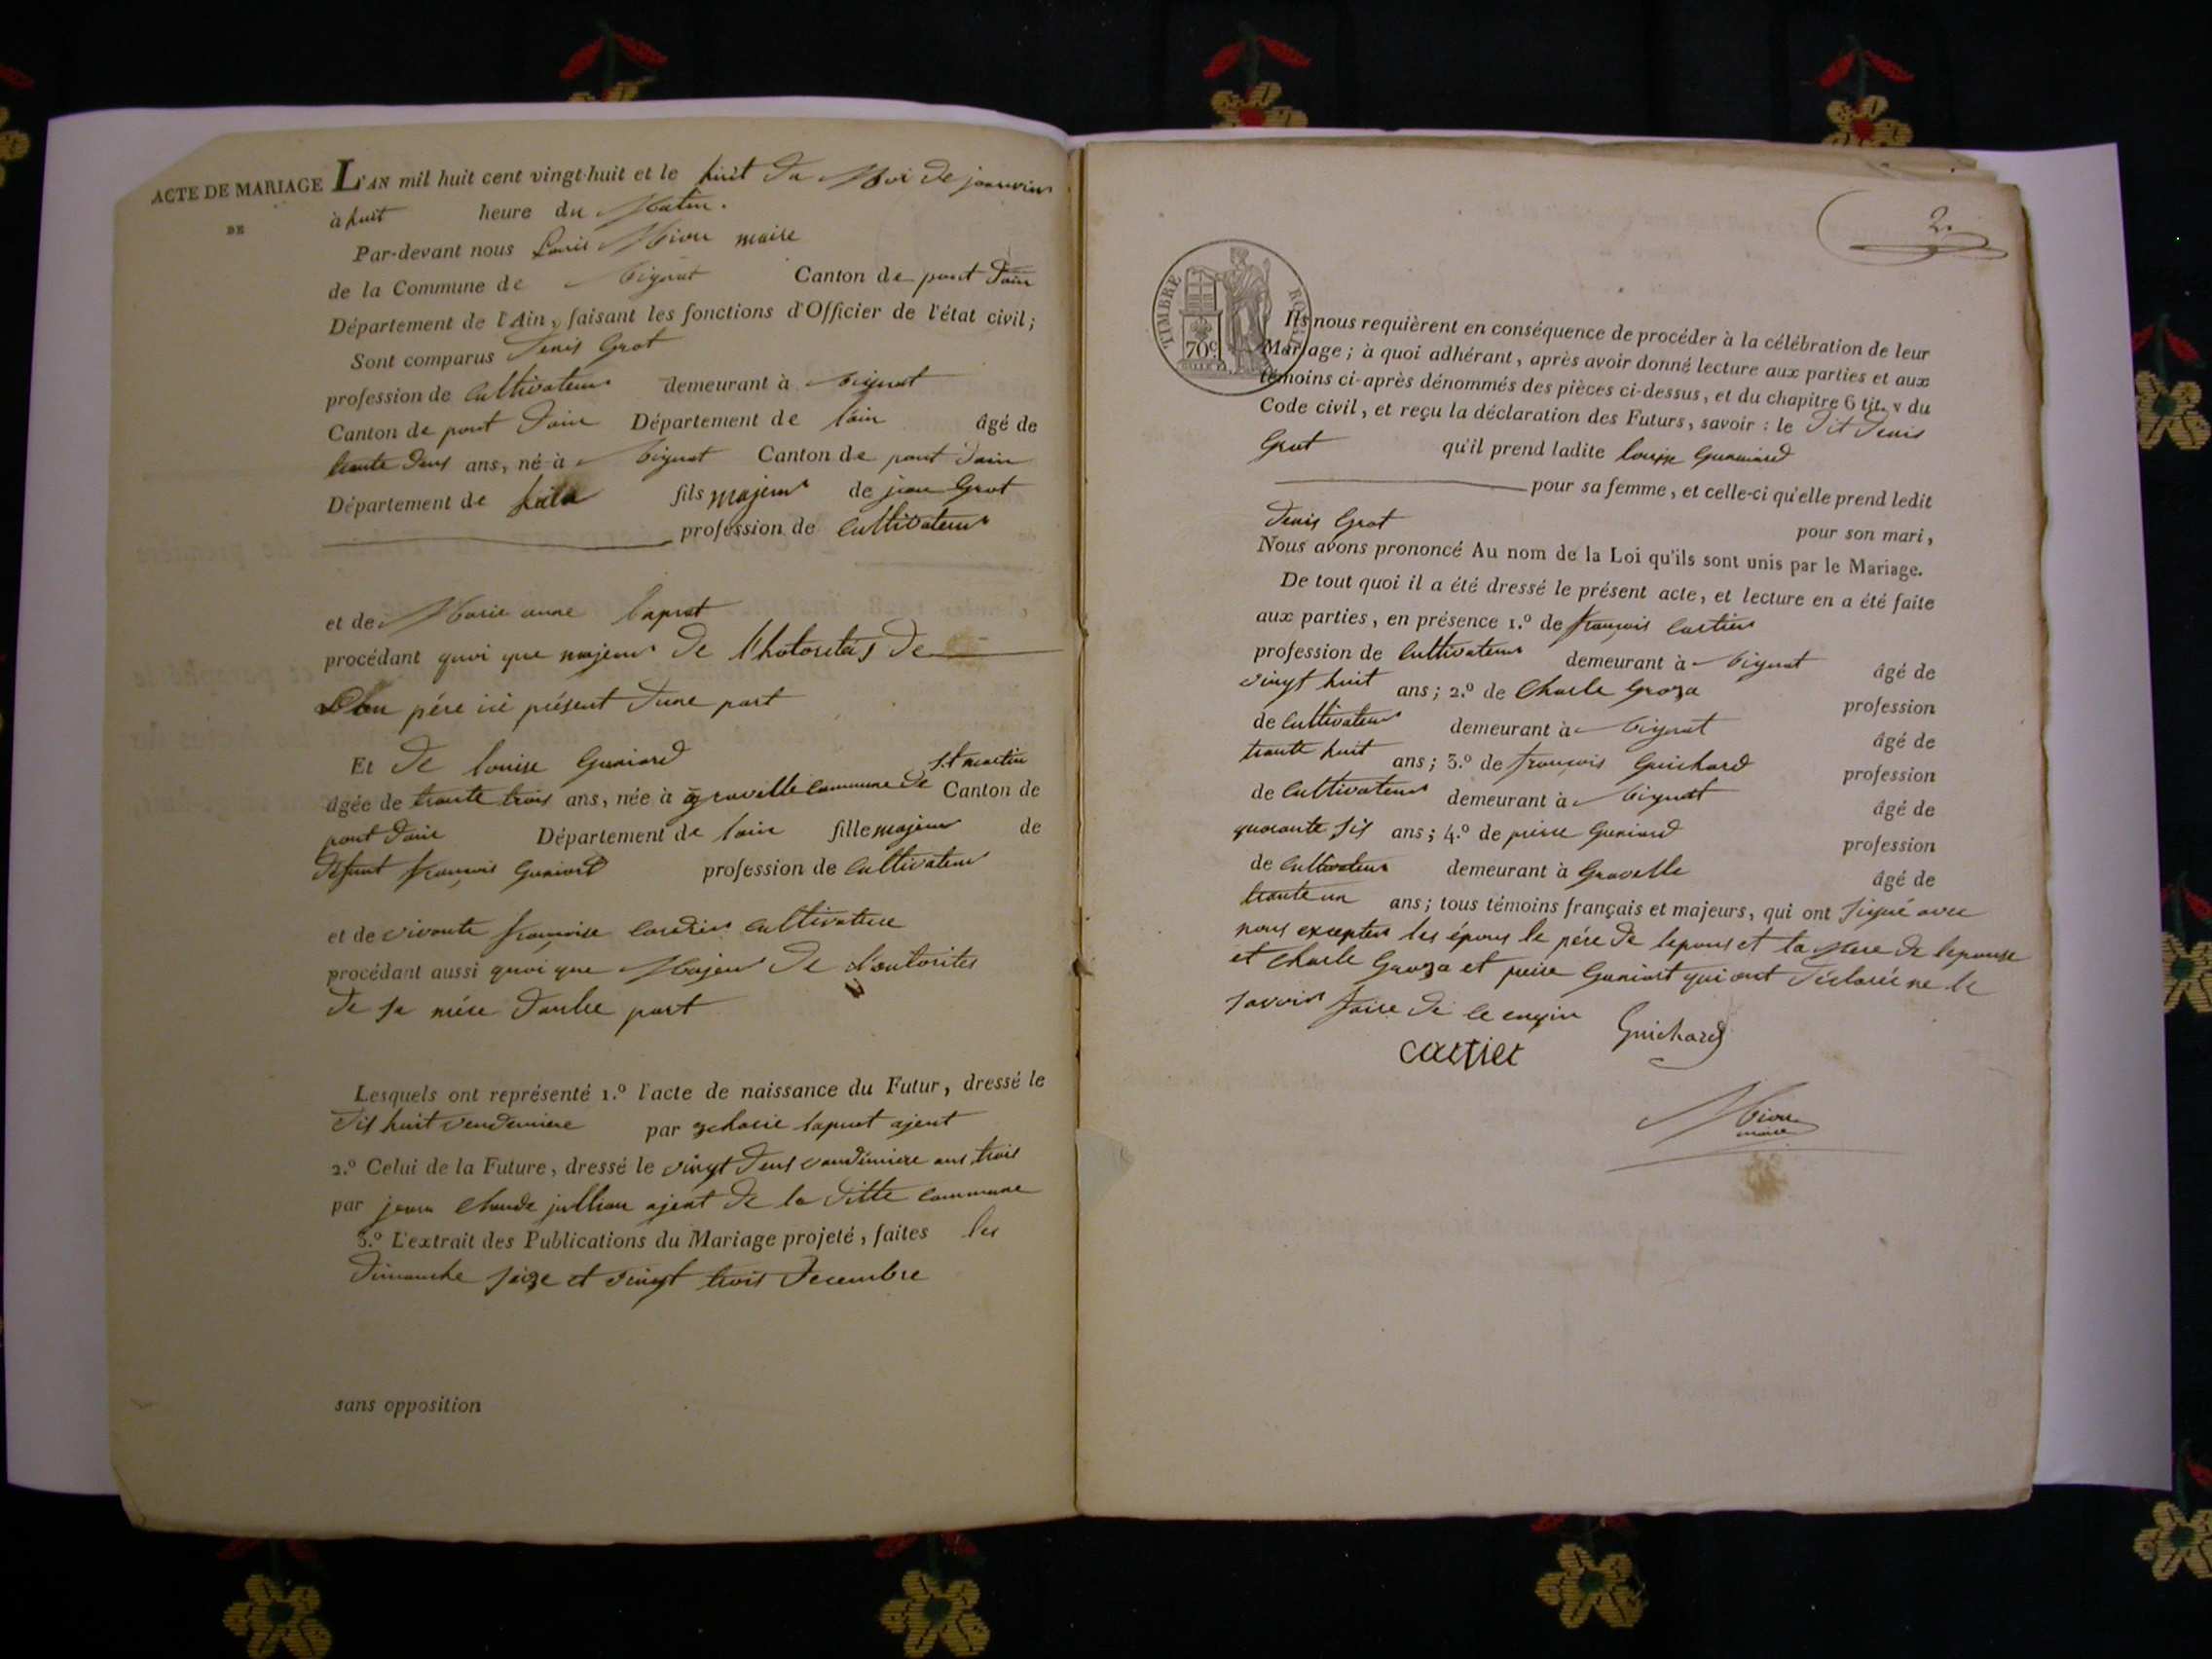 ACTE DE MARIAGE
DE
L'AN mil huit cent vingt-huit et le huit du Moi de janvier
à huit heure du Matin.
Par-devant nous Louis maire
de la Commune de Canton de pont Dain
Département de l'Ain, faisant les fonctions d'Officier de l'état civil;
Sont comparus Denis Grot
profession de Cultivateur demeurant à
Canton de pont Dain Département de lain âgé de
trante deus ans, né à Canton de pont dain
Département de fils majeur de jean Grot
profession de Cultivateur
et de Marie anne
procédant quoi que majeur De De
père ici présent Dune part
Et De louise Guniard
âgée de trante trois ans, née à gravelle Commune de St martin Canton de
pont Dain Département de lain fille majeur de
Défunt françois Guniard profession de Cultivateur
et de vivante françoise Cultivatrice
procédant aussi quoi que Majeur De l'autorites
De sa mère Dautre part
Lesquels ont représenté 1.º l'acte de naissance du Futur, dressé le
Dis huit vendemiere par ajent
2.º Celui de la Future, dressé le vingt Deus vandémiere ans trois
par jean Claude jullian ajent De la Ditte Commune
3.º L'extrait des Publications du Mariage projeté, faites les
Dimanche seize et vingt trois Decembre
sans opposition
2.
TIMBRE ROYAL
70c
Ils nous requièrent en conséquence de procéder à la célébration de leur
Mariage; à quoi adhérant, après avoir donné lecture aux parties et aux
témoins ci-après dénommés des pièces ci-dessus, et du chapitre 6 tit. v du
Code civil, et reçu la déclaration des Futurs, savoir : le Dit Denis
Grot qu'il prend ladite
pour sa femme, et celle-ci qu'elle prend ledit
Denis Grot pour son mari,
Nous avons prononcé Au nom de la Loi qu'ils sont unis par le Mariage.
De tout quoi il a été dressé le présent acte, et lecture en a été faite
aux parties, en présence 1.º de françois Cartier
profession de Cultivateur demeurant à âgé de
vingt huit ans; 2.º de Charle Groza profession
de Cultivateur demeurant à âgé de
trante huit ans; 3.º de françois Guichard profession
de Cultivateur demeurant à âgé de
quarante sis ans; 4.º de pierre Guniard profession
de Cultivateur demeurant à Gravelle âgé de
trante un ans; tous témoins français et majeurs, qui ont signé avec
nous excepter les épous le père De lepous et la Mere De lepouse
et Charle Groza et pierre Guniart qui ont Déclaré ne le
savoir faire De ce enquis
Guichard
cartier
maire